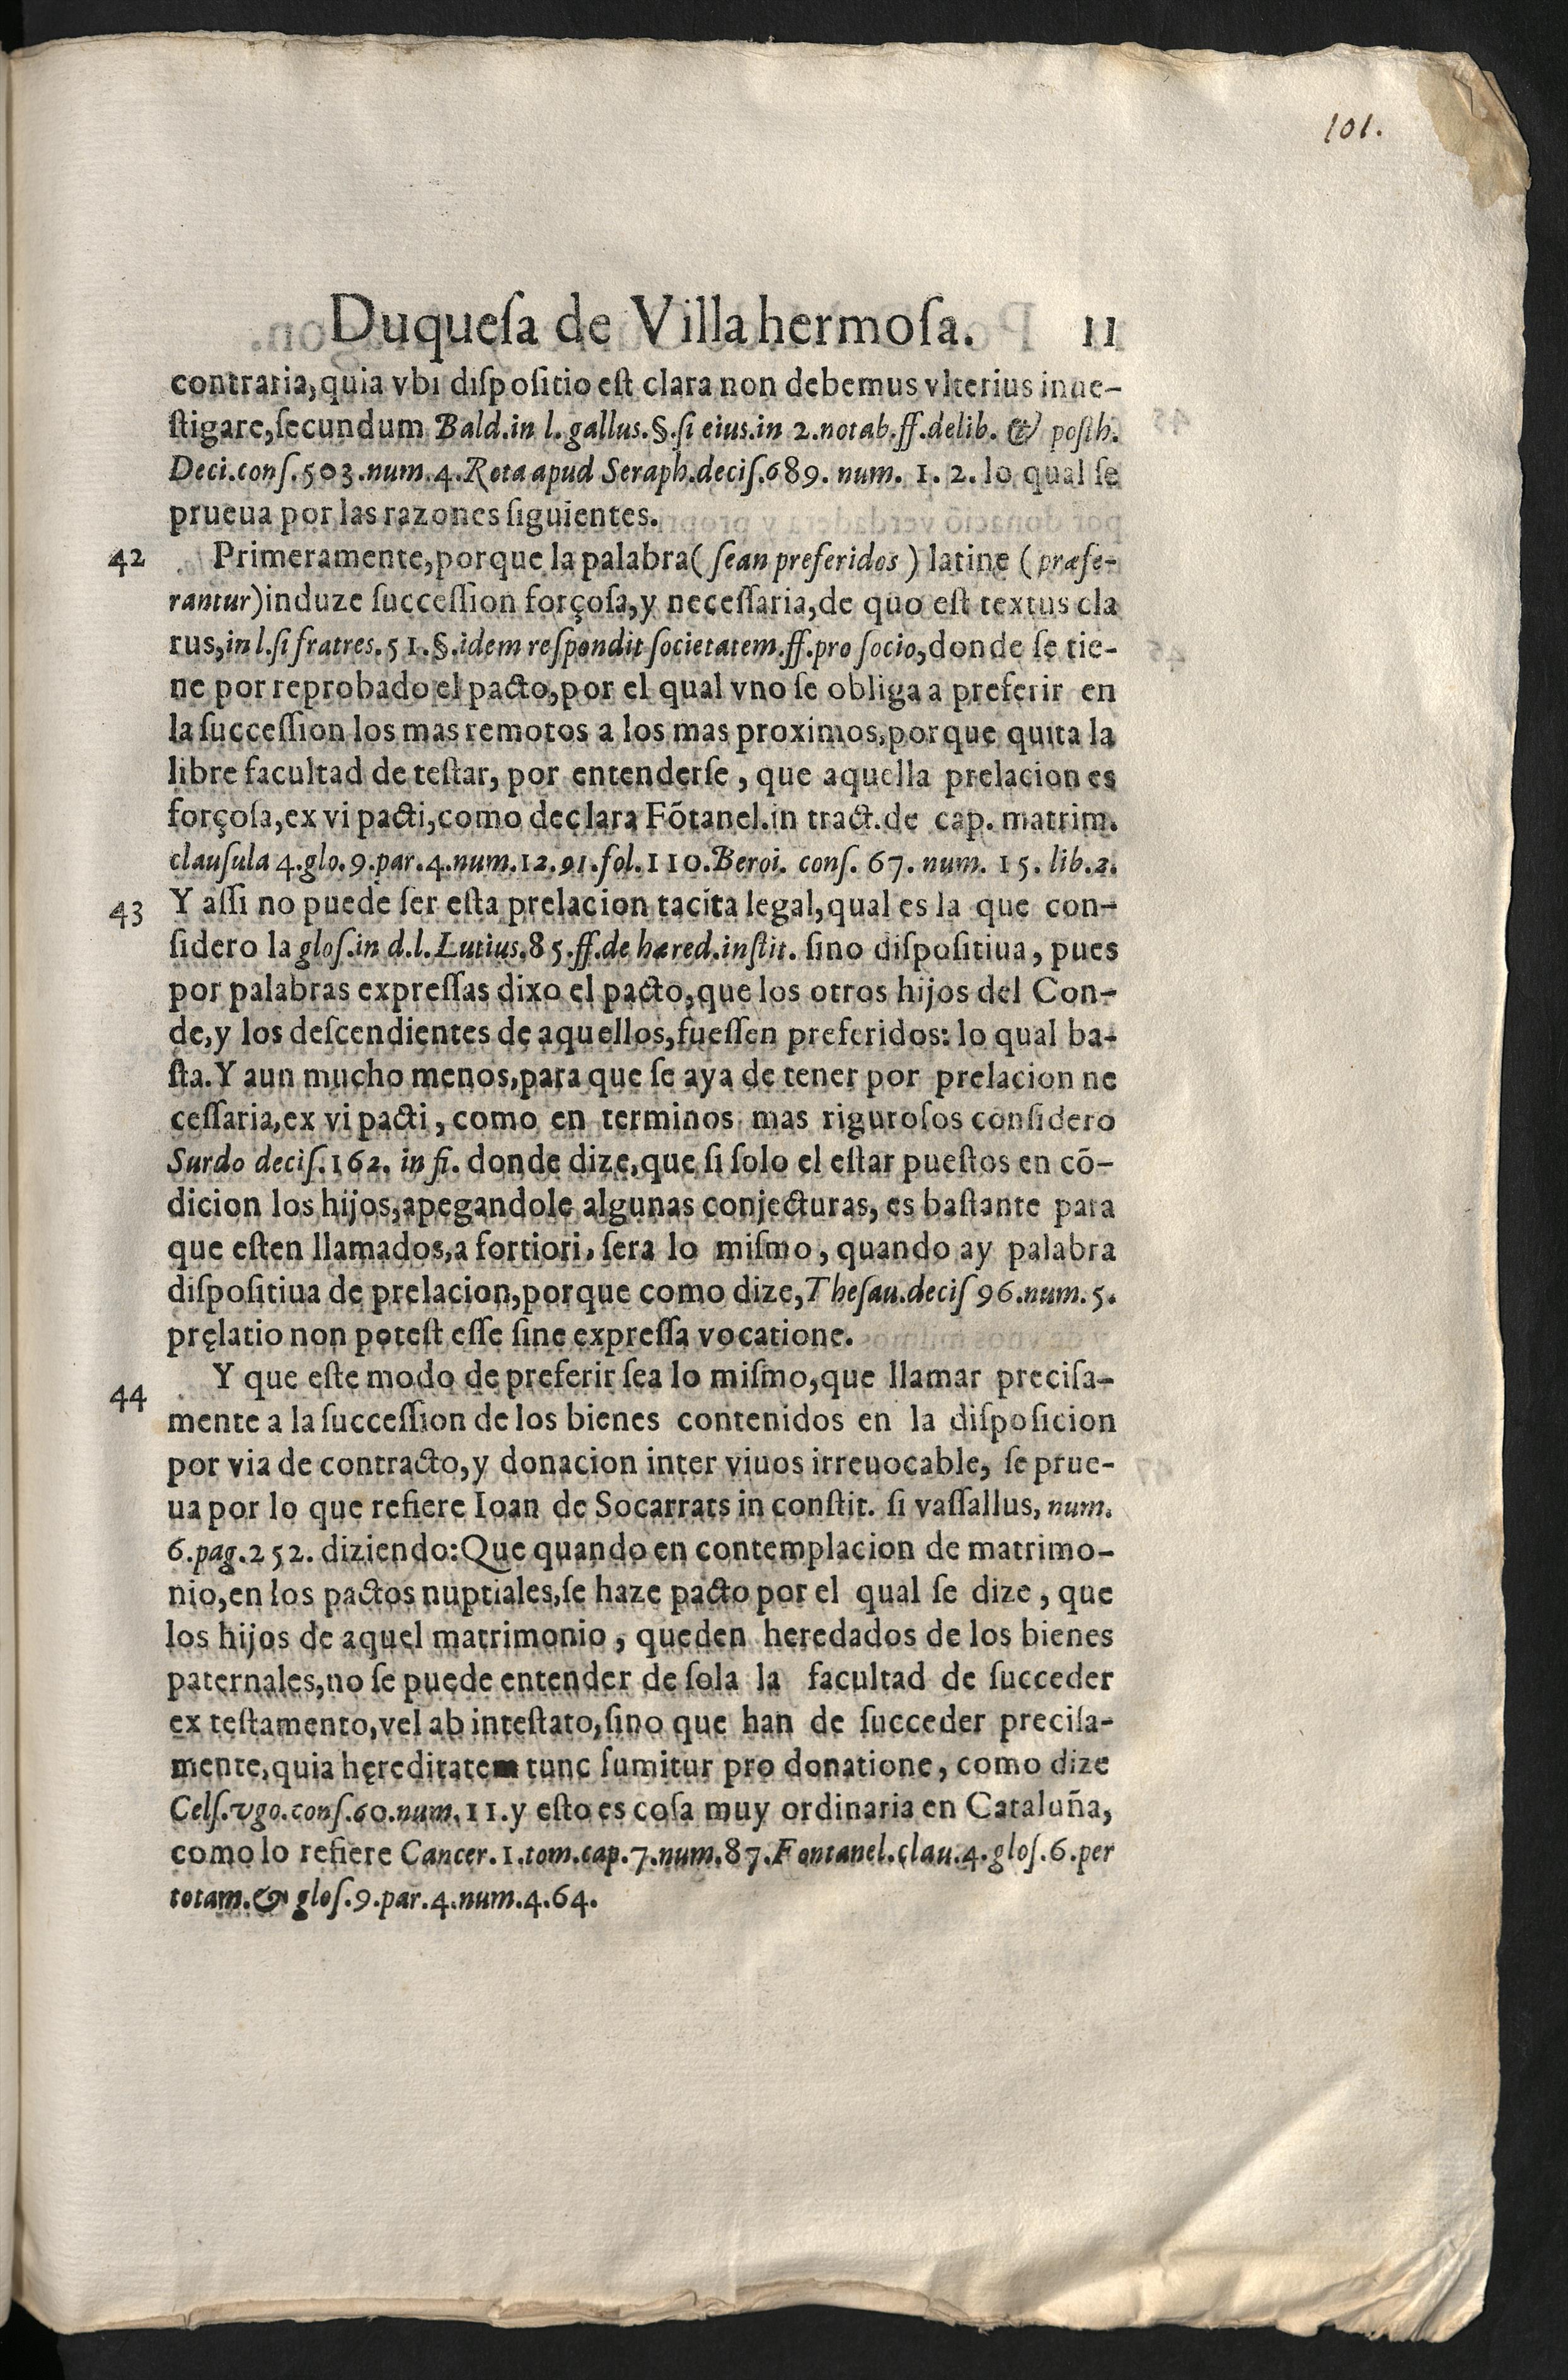 101.
Duqueſa de Villahermoſa. 11
contraria,quia vbi diſpoſitio eſt clara non debemus vlterius inue-
ſtigare,ſecundum Bald.in l.gallus.§.ſi eius.in 2.notab.ff.delib. & poſth.
Deci.conſ.503.num.4.Rota apud Seraph.deciſ.689. num. 1. 2. lo qual ſe
prueua por las razones ſiguientes.
42 Primeramente,porque la palabra( ſean preferidos ) latine ( præfe-
rantur)induze ſucceſſion forçoſa,y neceſſaria,de quo eſt textus cla
rus,in l.ſi fratres.51.§.idem reſpondit ſocietatem.ff.pro ſocio,donde ſe tie-
ne por reprobado el pacto,por el qual vno ſe obliga a preferir en
la ſucceſſion los mas remotos a los mas proximos,porque quita la
libre facultad de teſtar, por entenderſe, que aquella prelacion es
forçoſa,ex vi pacti,como declara Fõtanel.in tract.de cap. matrim.
clauſula 4.glo.9.par.4.num.12.91.fol.110.Beroi. conſ. 67. num. 15. lib.2.
43 Y aſſi no puede ſer eſta prelacion tacita legal,qual es la que con-
ſidero la gloſ.in d.l.Lutius.85.ff.de hæred.inſtit. ſino diſpoſitiua, pues
por palabras expreſſas dixo el pacto,que los otros hijos del Con-
de,y los deſcendientes de aquellos,fueſſen preferidos: lo qual ba-
ſta.Y aun mucho menos,para que ſe aya de tener por prelacion ne
ceſſaria,ex vi pacti, como en terminos mas riguroſos conſidero
Surdo deciſ.162. in fi. donde dize,que ſi ſolo el eſtar pueſtos en cõ-
dicion los hijos,apegandole algunas conjecturas, es baſtante para
que eſten llamados,a fortiori, ſera lo miſmo, quando ay palabra
diſpoſitiua de prelacion,porque como dize,Theſau.deciſ 96.num.5.
pręlatio non poteſt eſſe ſine expreſſa vocatione.
44 Y que eſte modo de preferir ſea lo miſmo,que llamar preciſa-
mente a la ſucceſſion de los bienes contenidos en la diſpoſicion
por via de contracto,y donacion inter viuos irreuocable, ſe prue-
ua por lo que refiere Ioan de Socarrats in conſtit. ſi vaſſallus, num.
6.pag.252. diziendo:Que quando en contemplacion de matrimo-
nio,en los pactos nuptiales,ſe haze pacto por el qual ſe dize, que
los hijos de aquel matrimonio, queden heredados de los bienes
paternales,no ſe puede entender de ſola la facultad de ſucceder
ex teſtamento,vel ab inteſtato,ſino que han de ſucceder preciſa-
mente,quia hęreditatem tunc ſumitur pro donatione, como dize
Celſ.vgo.conſ.60.num.11.y eſto es coſa muy ordinaria en Cataluña,
como lo refiere Cancer.1.tom.cap.7.num.87.Fontanel.clau.4.gloſ.6.per
totam.& gloſ.9.par.4.num.4.64.